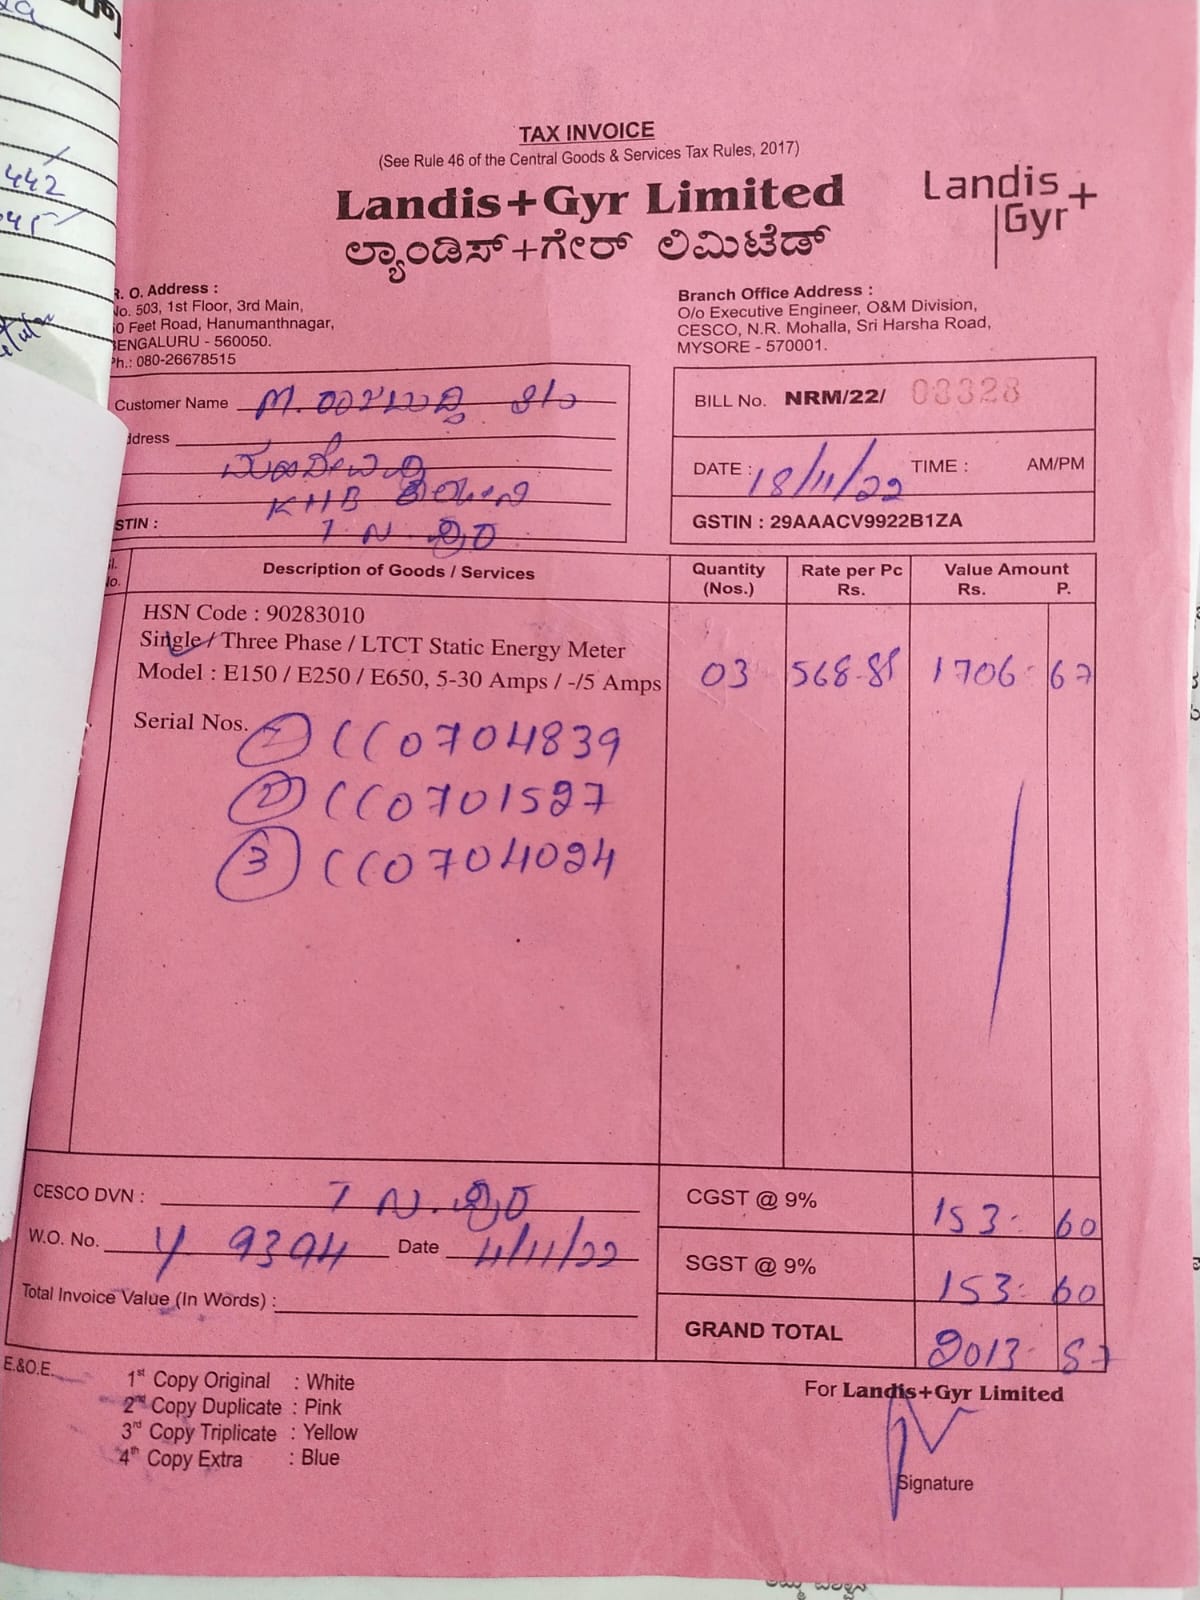 442
TAX INVOICE
(See Rule 46 of the Central Goods & Services Tax Rules, 2017)
Landis+Gyr Limited
ಲ್ಯಾಂಡಿಸ್+ಗೇರ್ ಲಿಮಿಟೆಡ್
Landis+
Gyr
R. O. Address :
No. 503, 1st Floor, 3rd Main,
0 Feet Road, Hanumanthnagar,
BENGALURU - 560050.
Ph.: 080-26678515
Branch Office Address :
O/o Executive Engineer, O&M Division,
CESCO, N.R. Mohalla, Sri Harsha Road,
MYSORE - 570001.
Customer Name M.
ddress
KHB
STIN : T N
BILL No. NRM/22/ 03328
DATE : 18/11/22 TIME : AM/PM
GSTIN : 29AAACV9922B1ZA
l. No. Description of Goods / Services Quantity (Nos.) Rate per Pc Rs. Value Amount Rs. P.
HSN Code : 90283010
Single / Three Phase / LTCT Static Energy Meter
Model : E150 / E250 / E650, 5-30 Amps / -/5 Amps 03 568-89 1706- 67
Serial Nos. 1 CC0704839
2 CC0701527
3 CC0704024
CESCO DVN : T N.
W.O. No. 9394 Date 4/11/22
Total Invoice Value (In Words) :
CGST @ 9% 153- 60
SGST @ 9% 153- 60
GRAND TOTAL 2013- 87
E.&O.E.
1st Copy Original : White
2nd Copy Duplicate : Pink
3rd Copy Triplicate : Yellow
4th Copy Extra : Blue
For Landis+Gyr Limited
Signature